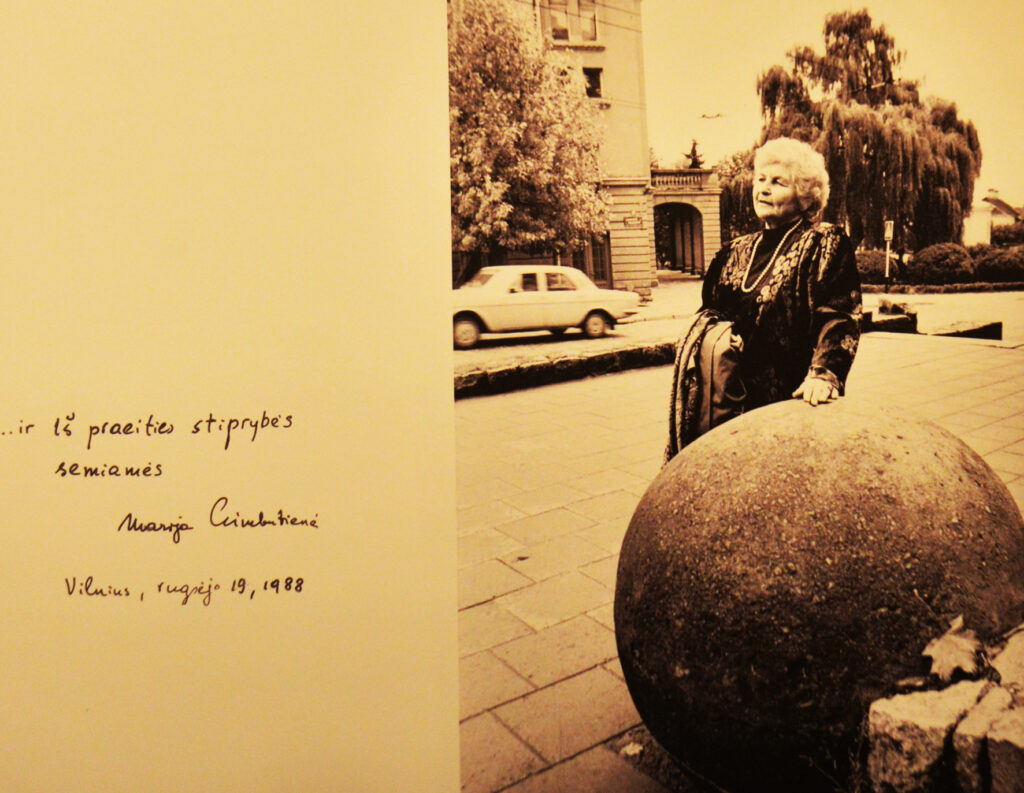 ...ir Iš praeities stiprybės
semiamės
Marija Gimbutienė
Vilnius, rugsėjo 19, 1988